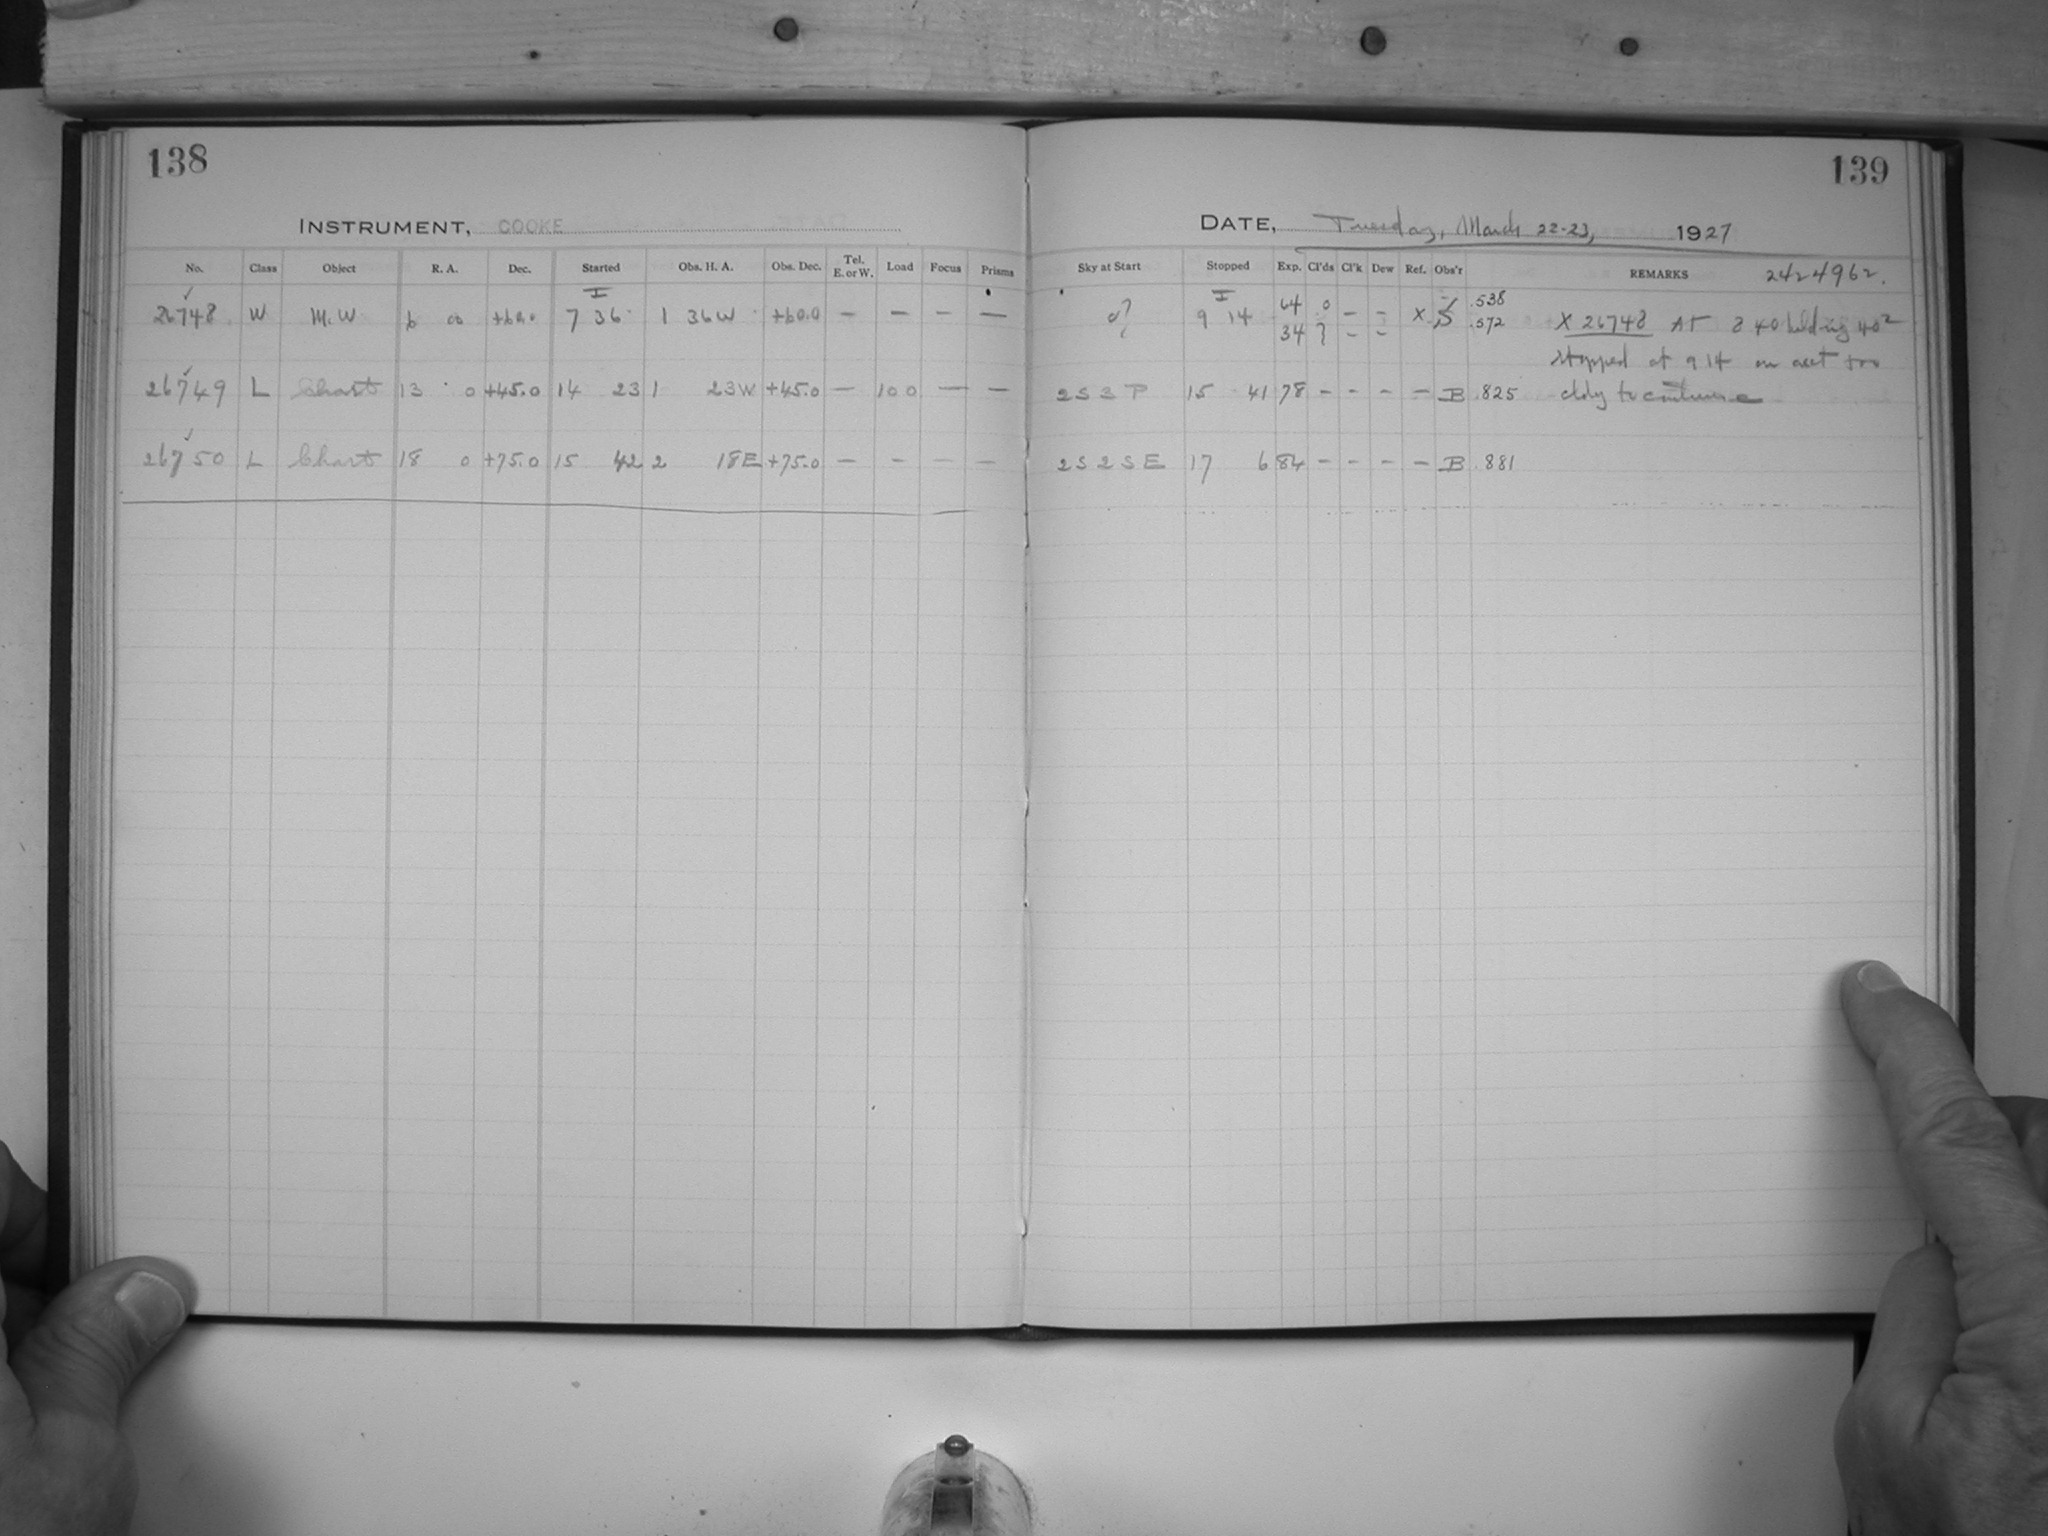 138
INSTRUMENT, COOKE
No. Class Object R. A. Dec. Started Obs. H. A. Obs. Dec. Tel. E. or W. Load Focus Prisms
I
26748 W M.W 6 00 +60.0 7 36 1 36W +60.0 — — — —
26749 L Chart 13 0 +45.0 14 23 1 23W +45.0 — 100 — —
26750 L Chart 18 0 +75.0 15 42 2 18E +75.0 — — — —
139
DATE, Tuesday, March 22-23, 1927
Sky at Start Stopped Exp. Cl'ds Cl'k Dew Ref. Obs'r REMARKS 2424962.
I
9 14 64 0 — — X .538
34 } — — .572 X 26748 At 8 40
stopped at 9 14 on acct too
2S 3 P 15 41 78 — — — — B .825 cldy to continue
2S 2S E 17 6 84 — — — — B .881